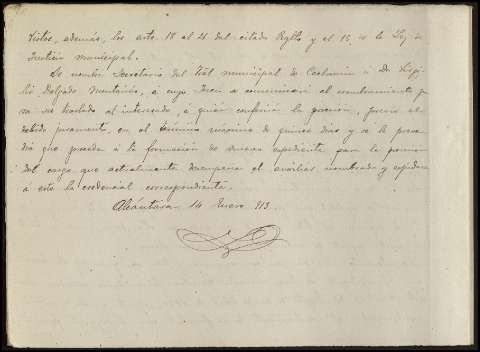 Vistos, además, los arts 18 al 21 del citado Regto y el 15 de la Ley de
Justicia municipal.
Se nombra Secretario del Tral municipal de a Dn
Delgado Montaños, á cuyo Juez se comunicará el nombramiento pa
ra su traslado al interesado, á quien conferirá la posesión, previo el
debido juramento, en el término máximo de quince días y se le preven
drá que proceda á la formación de nuevo expediente para la provisión
del cargo que actualmente desempeña el auxiliar nombrado y expídase
á este la credencial correspondiente.
Alcántara 14 Enero 913.